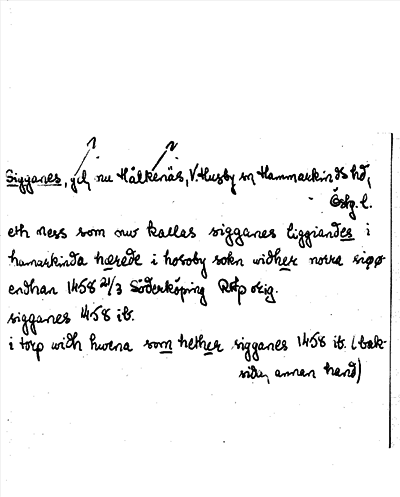 Sigganes, gd, nu Hålkenäs, V. Husby sn Hammarkinds hd,
Östg. l.
eth ness som nw kallas sigganes liggiandes i
hamarkinda hærede i hosoby sokn widher norra siøø
endhan 1458 21/3 Söderköping RAp orig.
sigganes 1458 ib.
i torp widh hwena som hether sigganes 1458 ib. (bak-
sida, annan hand)